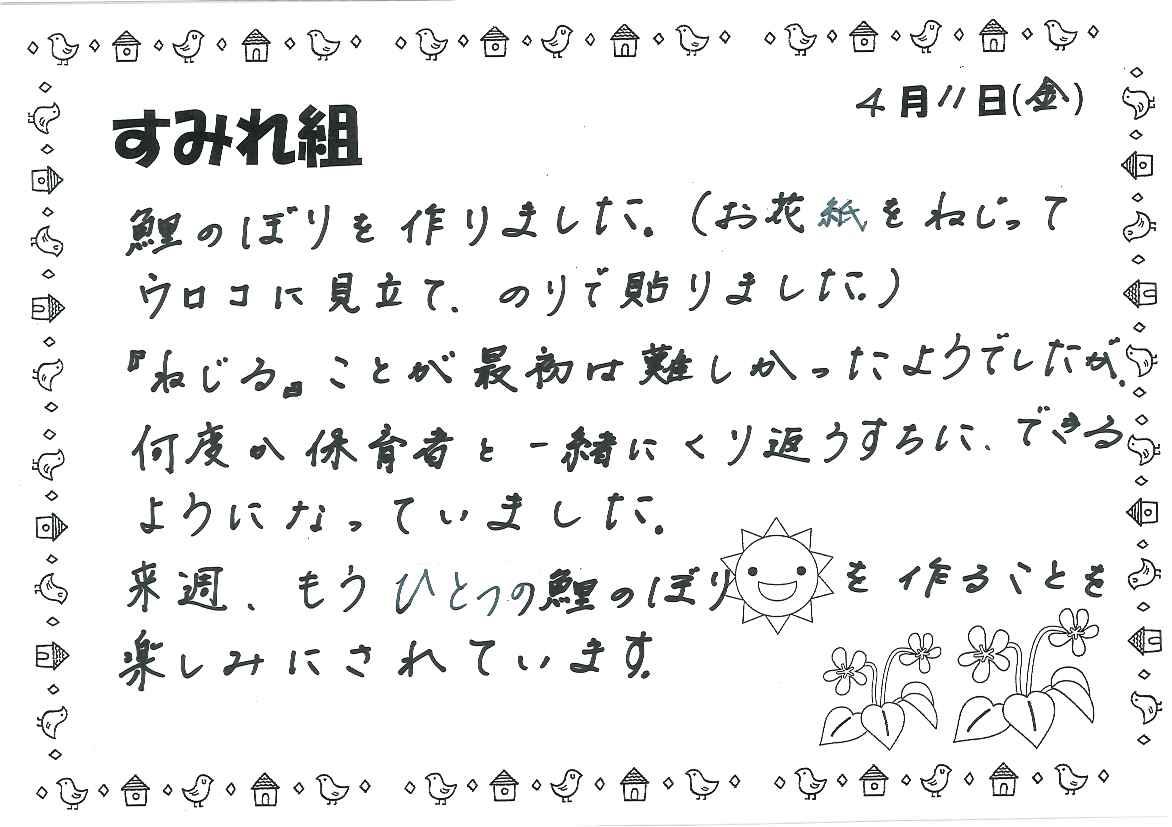 4月11日(金)
すみれ組
鯉のぼりを作りました。(お花紙をねじって
ウロコに見立て、のりで貼りました。)
『ねじる』ことが最初は難しかったようでしたが、
何度か保育者と一緒にくり返うすちに、できる
ようになっていました。
来週、もうひとつの鯉のぼりを作ることを
楽しみにされています。